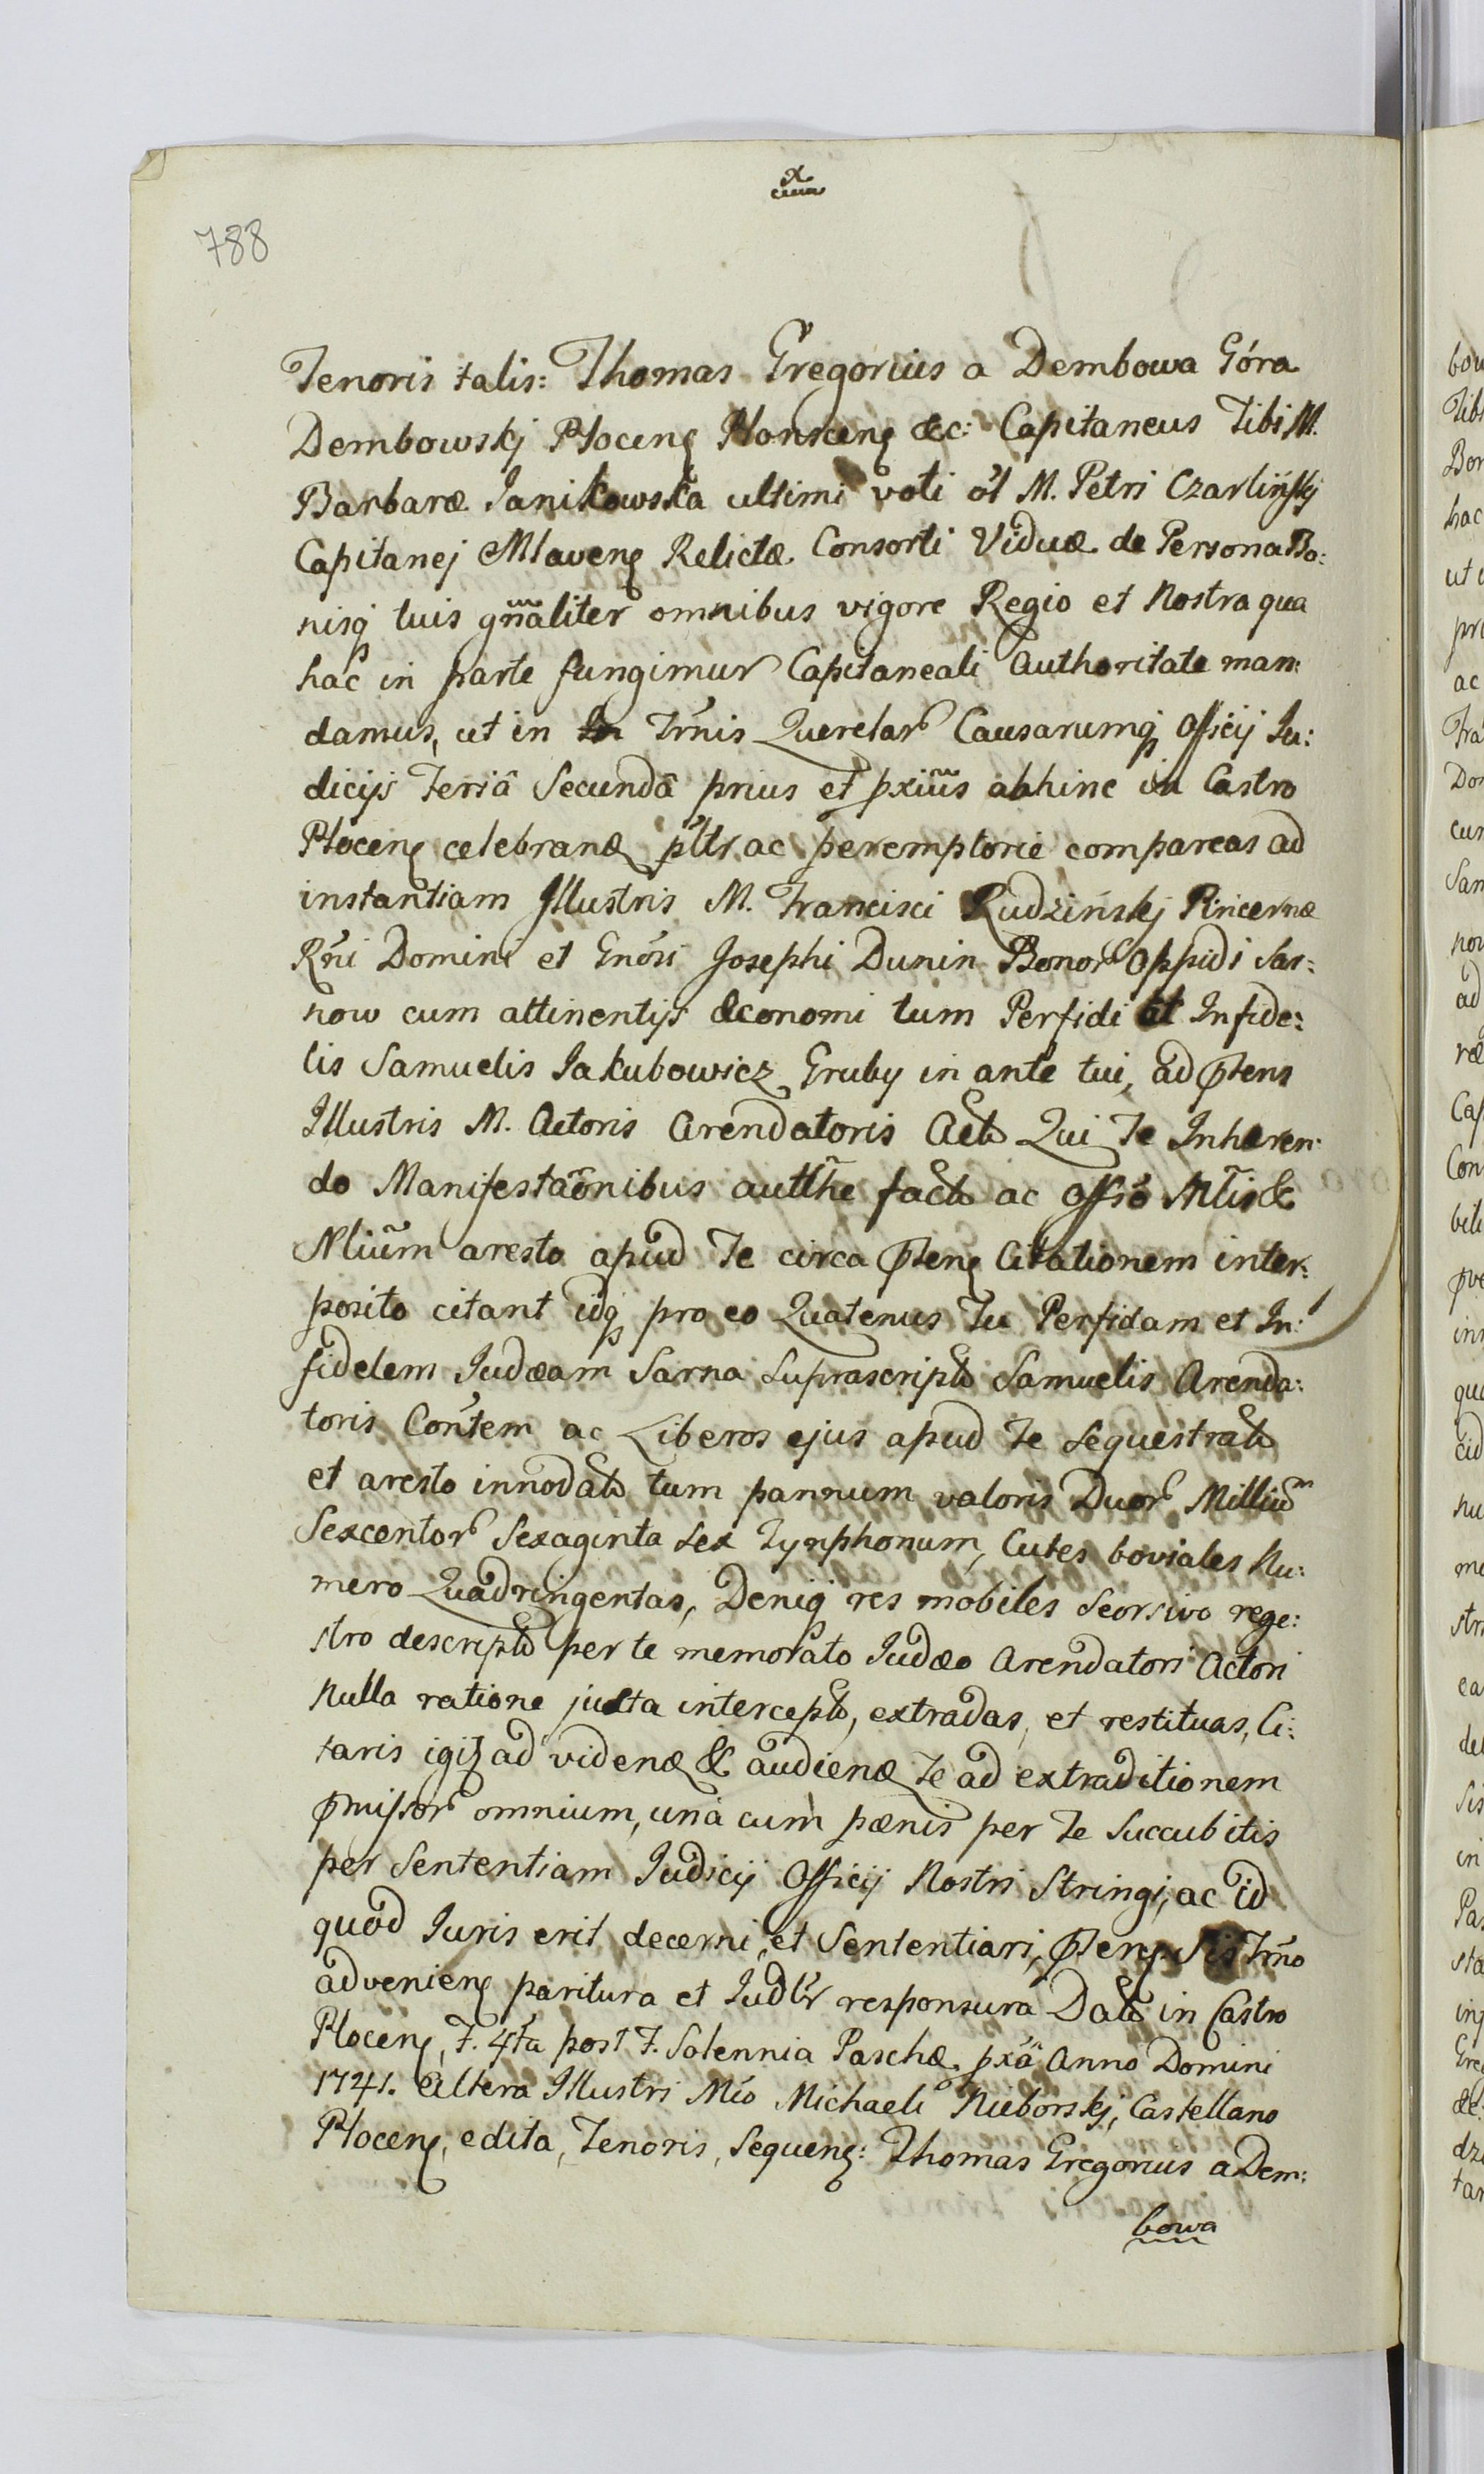 x
788
Tenoris talis: Thomas Gregorius a Dembowa Góra
Dembowskj Plocenȩ Plonscenȩ &c: Capitaneus Tibi M.
Barbaræ Janikowska ultimi voti ol M. Petri Czarlińskj
Capitanej Mlavenȩ Relictæ Consorti Viduæ de Persona Bo:
nisq tuis gnaliter omnibus vigore Regio et Nostra qua
hac in parte fungimur Capitaneali Authoritate man:
damus, ut in Trnis Querelar Causarumq Officij Ju:
dicijs Feriâ Secundâ prius et pxius abhinc in Castro
Plocenȩ celebranȩ pltr ac peremptorie compareas ad
instantiam Illustris M. Francisci Rudzińskj Pincernæ
Rni Domini et Gnosi Josephi Dunin Bonor Oppidi Sar:
now cum attinentijs Œconomi tum Perfidi et Infide:
lis Samuelis Jakubowicz Gruby in ante tui, ad pstens
Illustris M. Actoris Arendatoris Actȩ Qui Te Inhæren:
do Manifestaonibus autthe factȩ ac Offio Mtis &
Nlium aresto apud Te circa pstenȩ Citationem inter:
posito citant idq pro eo Quatenus Tu Perfidam et In:
fidelem Judæam Sarna Suprascriptȩ Samuelis Arenda:
toris Contem ac Liberos ejus apud Te Sequestratȩ
et aresto innodatȩ tum pannum valoris Duor Millium
Sexcentor Sexaginta Sex Tynphonum, Cutes boviales Nu:
mero Quadringentas, Deniq res mobiles Seorsivo rege:
stro descriptȩ per te memorato Judæo Arendatori Actori
Nulla ratione justa interceptȩ, extradas, et restituas, Ci:
taris igiz ad videnȩ & audienȩ Te ad extraditionem
pmissor omnium, una cum pænis per Te Succubitis
per Sententiam Judicij Officij Nostri Stringi, ac id
quod Juris erit decerni et Sententiari, pstenȩ Sis Trno
advenienȩ paritura et Judlr responsura Datȩ in Castro
Plocenȩ, F. 4ta post F. Solennia Paschæ pxa Anno Domini
1741. Altera Illustri Mło Michaeli Nieborskj, Castellano
Plocenȩ, edita, Tenoris, Sequenȩ: Thomas Gregorius a Dem:
bowa